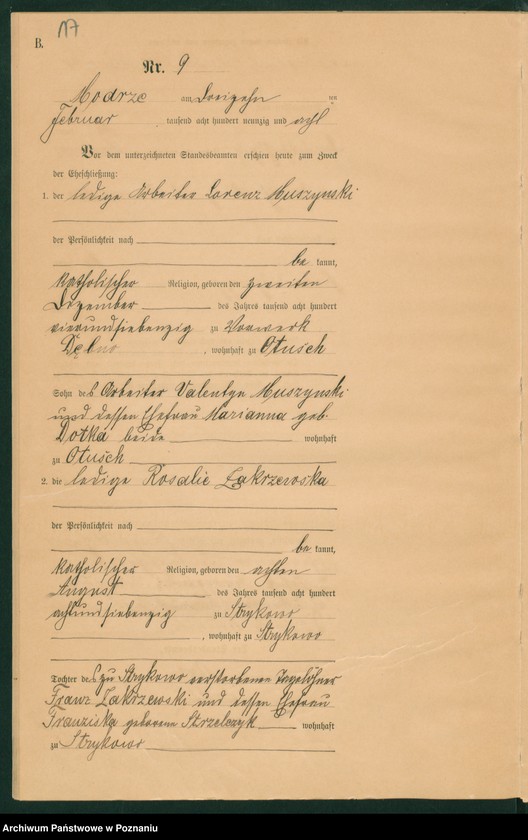 17
B.
Nr. 9
Modrze am Dreizehn ten
Februar tausend acht hundert neunzig und acht
Vor dem unterzeichneten Standesbeamten erschien heute zum Zweck
der Eheschließung:
1. der ledige Arbeiter Lorenz Muszynski
der Persönlichkeit nach
be kannt,
katholischer Religion, geboren den zweiten
Dezember des Jahres tausend acht hundert
vierundsiebenzig zu Vorwerk
Dębno, wohnhaft zu Otusch
Sohn des Arbeiter Valentyn Muszynski
und dessen Ehefrau Marianna geb.
Dotka beide wohnhaft
zu Otusch
2. die ledige Rosalie Zakrzewska
der Persönlichkeit nach
be kannt,
katholischer Religion, geboren den achten
August des Jahres tausend acht hundert
achtundsiebenzig zu Strykowo
, wohnhaft zu Strykowo
Tochter des zu Strykowo verstorbenen Tagelöhner
Franz Zakrzewski und dessen Ehefrau
Franziska geborene Strzelczyk wohnhaft
zu Strykowo
Archiwum Państwowe w Poznaniu